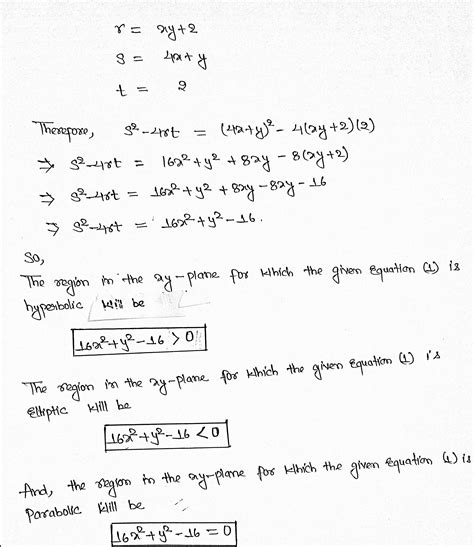 r = xy+2
s = 4x+y
t = 2
Therefore, s²-4rt = (4x+y)² - 4(xy+2)(2)
⇒ s²-4rt = 16x²+y²+8xy - 8(xy+2)
⇒ s²-4rt = 16x²+y²+8xy-8xy-16
⇒ s²-4rt = 16x²+y²-16.
So,
The region in the xy-plane for which the given Equation (1) is
hyperbolic will be
16x²+y²-16 > 0
The region in the xy-plane for which the given Equation (1) is
Elliptic will be
16x²+y²-16 < 0
And, the region in the xy-plane for which the given Equation (1) is
Parabolic will be
16x²+y²-16 = 0